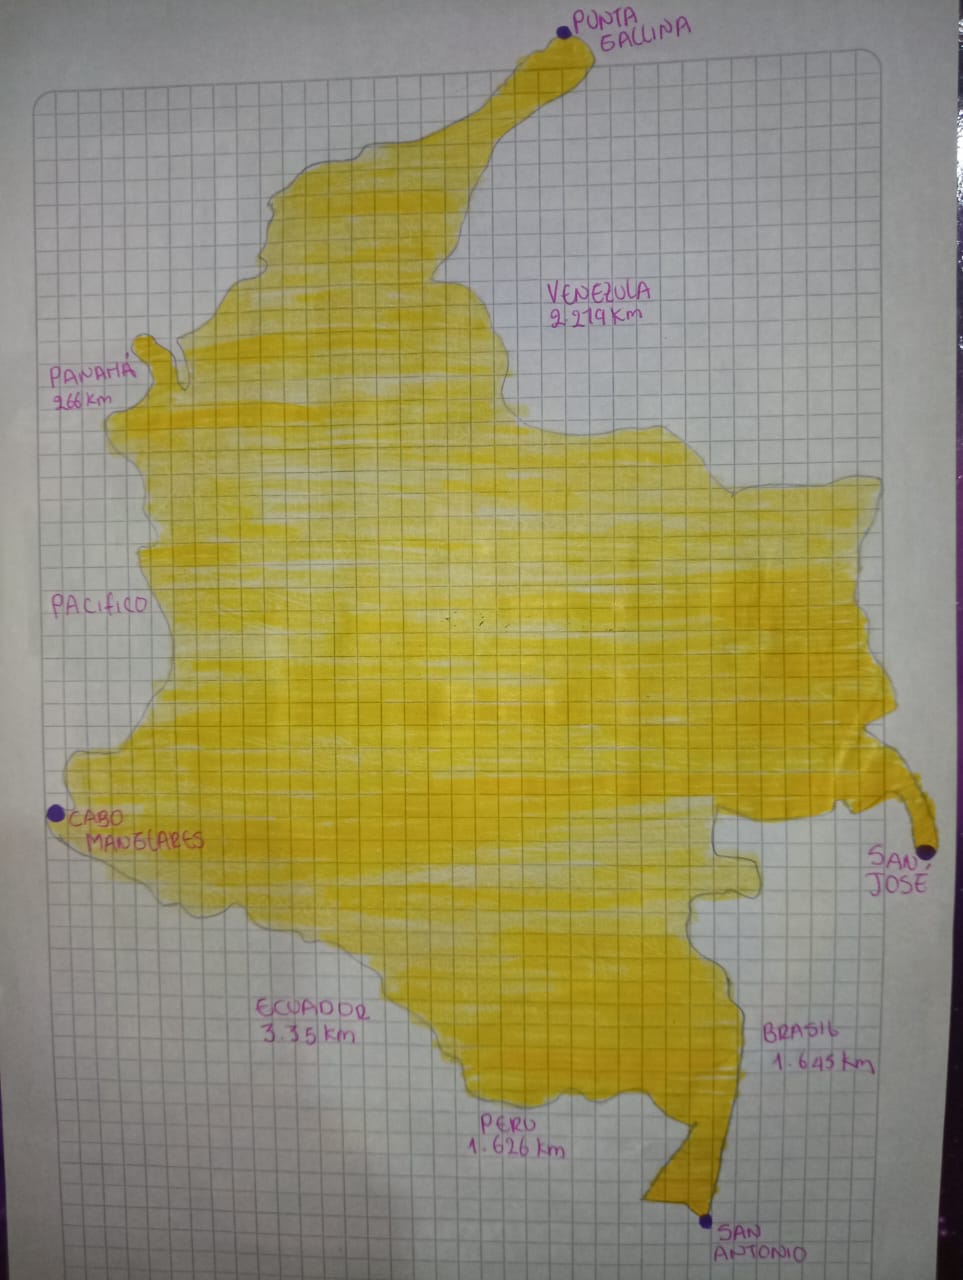 PUNTA
GALLINA
VENEZULA
2.219 Km
PANAMÁ
266 Km
PACIfICO
CABO
MANGLARES
SAN
JOSÉ
ECUADOR
3.35 Km
BRASIL
1.645 Km
PERU
1.626 Km
SAN
ANTONIO